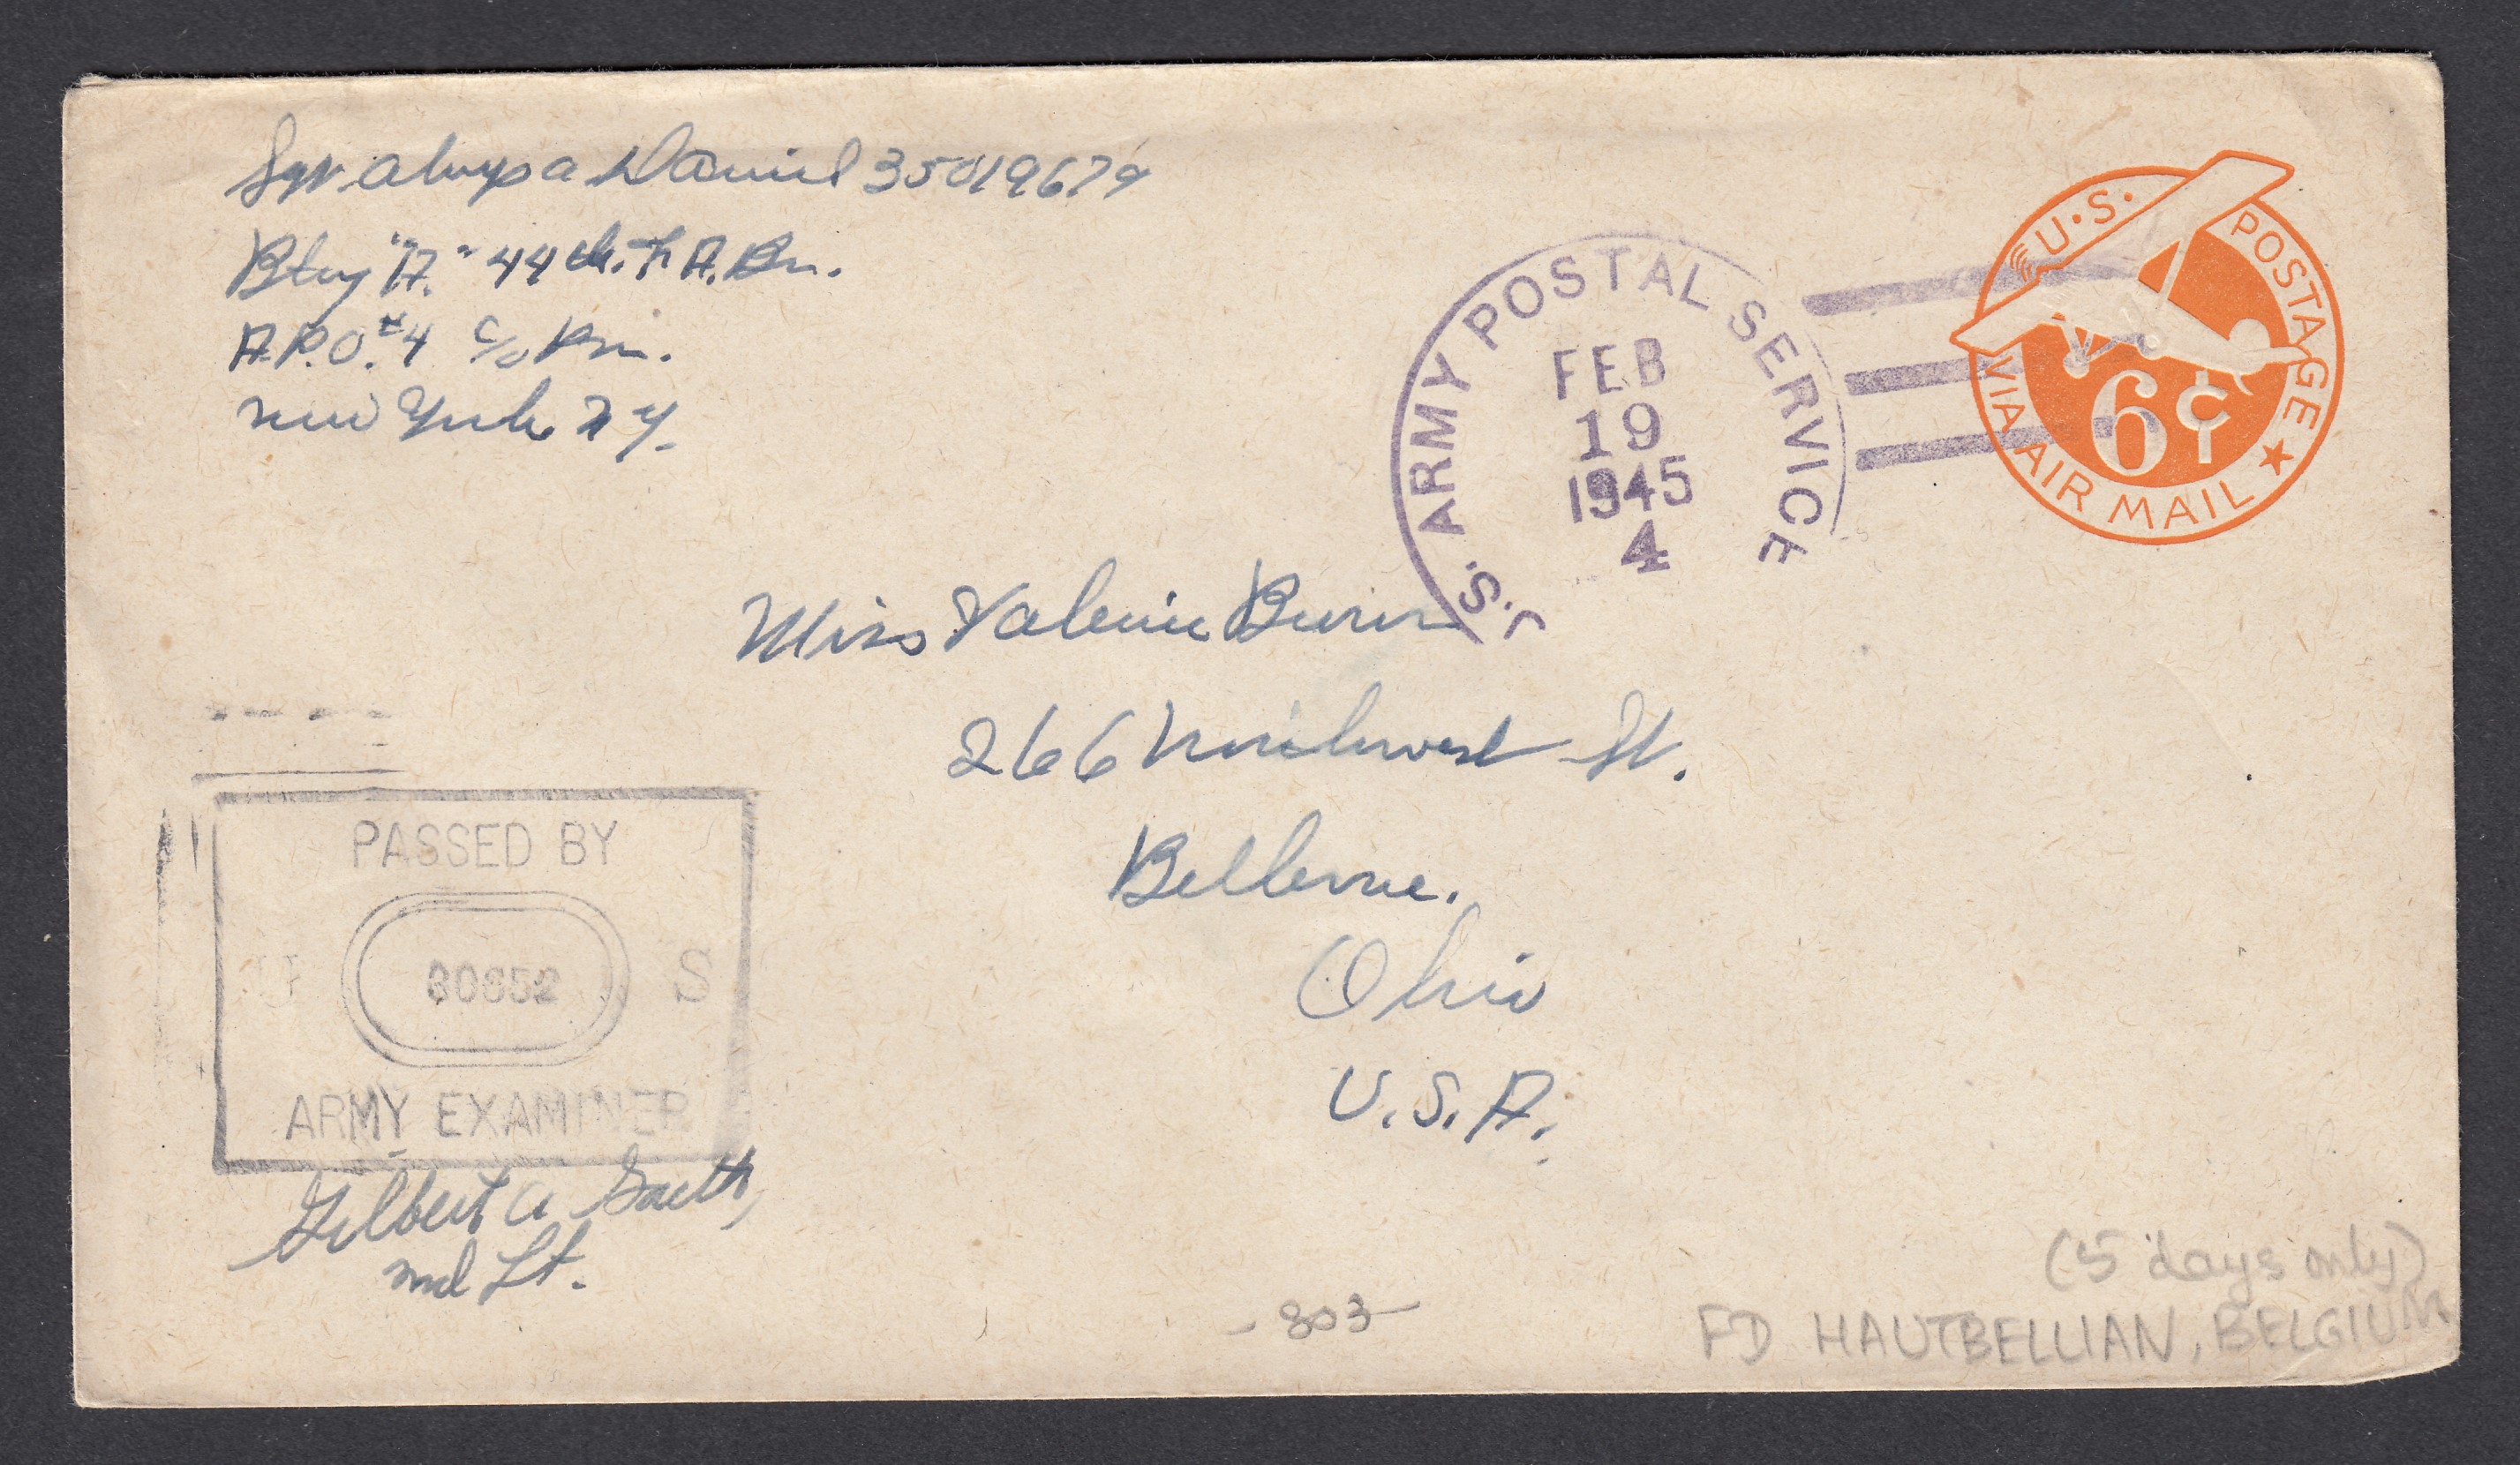 Sgt. Aloys A Daniel 35019679
Btry "A." 44th. F A. Bn.
A.P.O. #4 c/o P.m.
New York N Y.
U.S. ARMY POSTAL SERVICE
FEB
19
1945
4
U.S. POSTAGE
6¢
VIA AIR MAIL
Miss Valerie Burin
266 Northwest St.
Bellevue.
Ohio
U.S.A.
PASSED BY
U 30652 S
ARMY EXAMINER
Gilbert A
2nd Lt.
-803-
(5 days only)
FD HAUTBELLIAN, BELGIUM